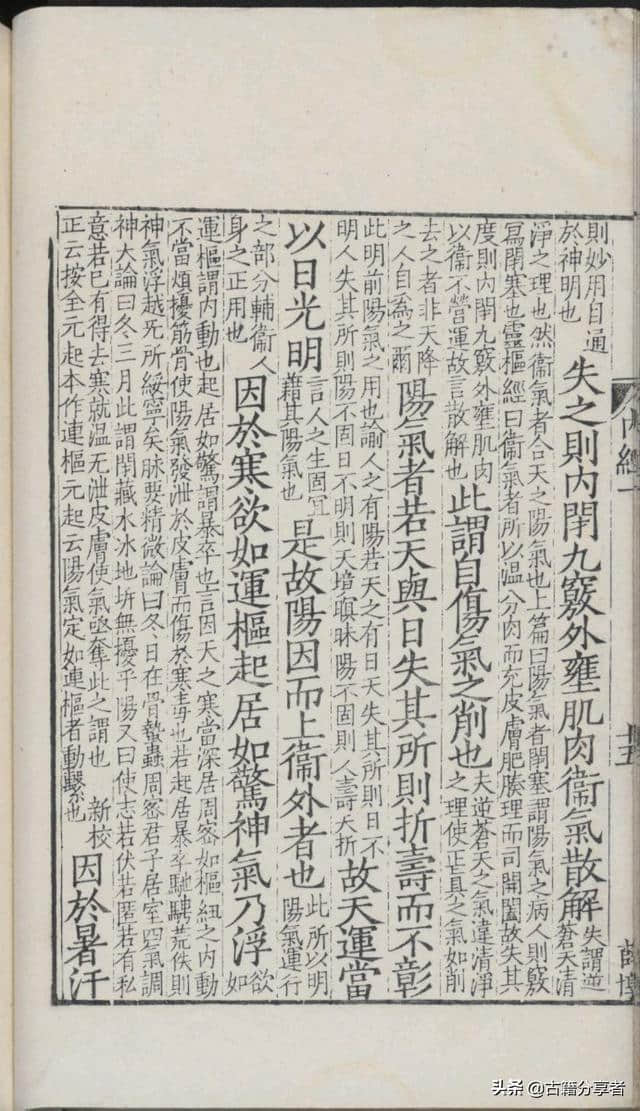 則妙用自通
於神明也
失之則内閉九竅外壅肌肉衞氣散解
失謂逆
蒼天清
淨之理也然衞氣者合天之陽氣也上篇曰陽氣者閉塞謂陽氣之病人則竅
冩閉塞也靈樞經曰衞氣者所以温分肉而充皮膚肥腠理而司開闔故失其
度則内閉九竅外壅肌肉
以衞不營運故言散解也
此謂自傷氣之削也
夫逆蒼天之氣違清淨
之理使正真之氣如削
去之者非天降
之人自爲之爾
陽氣者若天與日失其所則折壽而不彰
此明前陽氣之用也諭人之有陽若天之有日天失其所則日不
明人失其所則陽不固日不明則天境暝昧陽不固則人壽夭折
故天運當
以日光明
言人之生固宜
藉其陽氣也
是故陽因而上衞外者也
此所以明
陽氣運行
之部分輔衞人
身之正用也
因於寒欲如運樞起居如驚神氣乃浮
欲
如
運樞謂内動也起居如驚謂暴卒也言因天之寒當深居周密如樞紐之内動
不當煩擾筋骨使陽氣發泄於皮膚而傷於寒毒也若起居暴卒馳騁荒佚則
神氣浮越无所綏寧矣脉要精微論曰冬日在骨蟄蟲周密君子居室四氣調
神大論曰冬三月此謂閉藏水冰地坼無擾乎陽又曰使志若伏若匿若有私
意若已有得去寒就温无泄皮膚使氣亟奪此之謂也 新校
正云按全元起本作連樞元起云陽氣定如連樞者動繫也
因於暑汗
头条 @古籍分享者